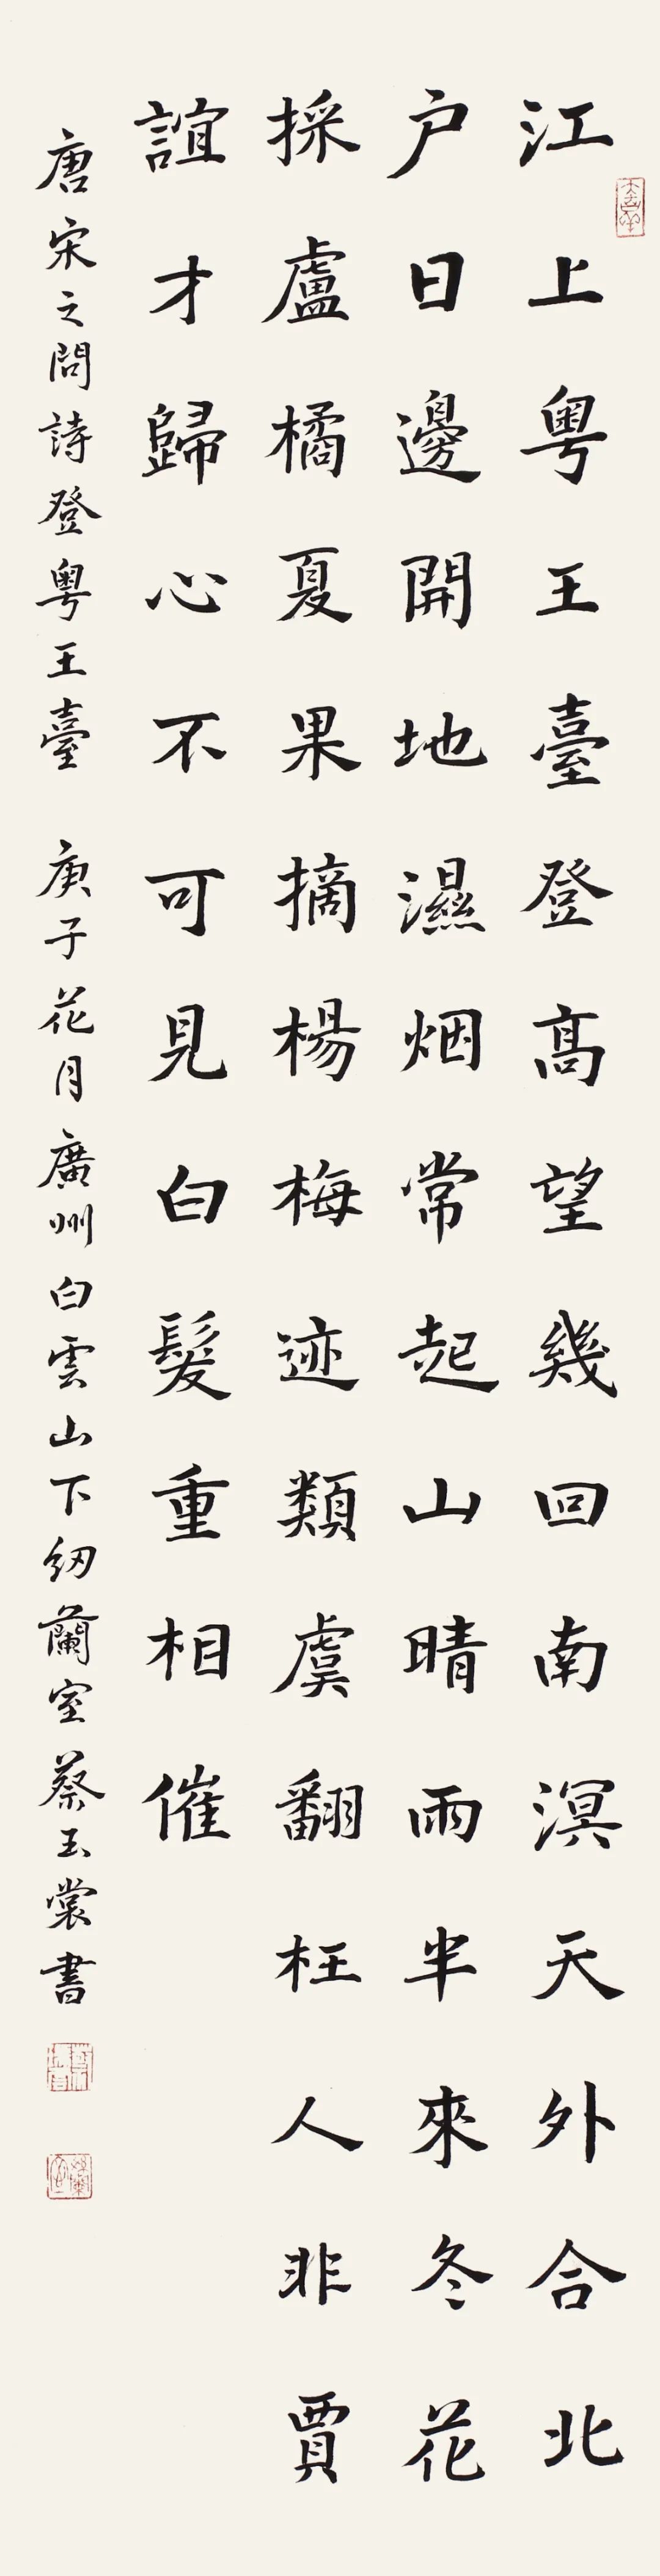 江上粵王臺登高望幾回南溟天外合北
户日邊開地濕烟常起山晴雨半來冬花
採盧橘夏果摘楊梅迹類虞翻枉人非賈
誼才歸心不可見白髮重相催
唐宋之問詩登粵王臺 庚子花月廣州白雲山下紉蘭室蔡玉裳書